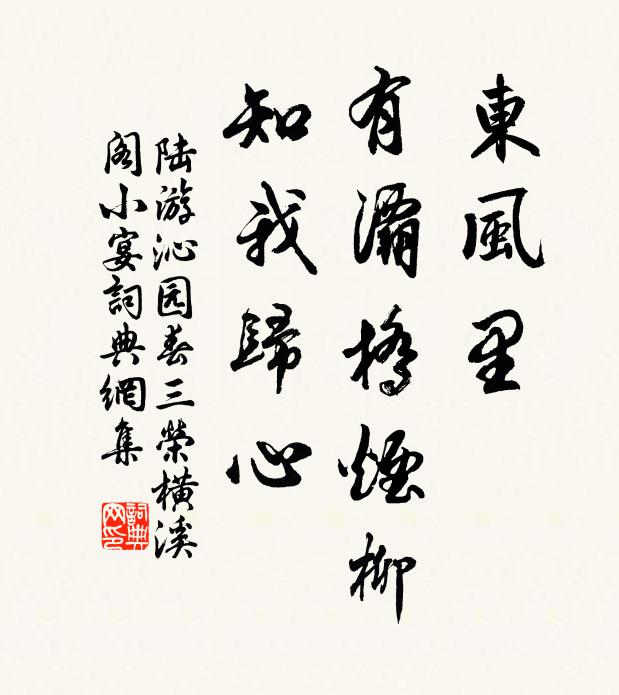 東風里
有灞橋煙柳
知我歸心
陆游沁园春三榮橫溪
阁小宴詞典網集
詞典
网印